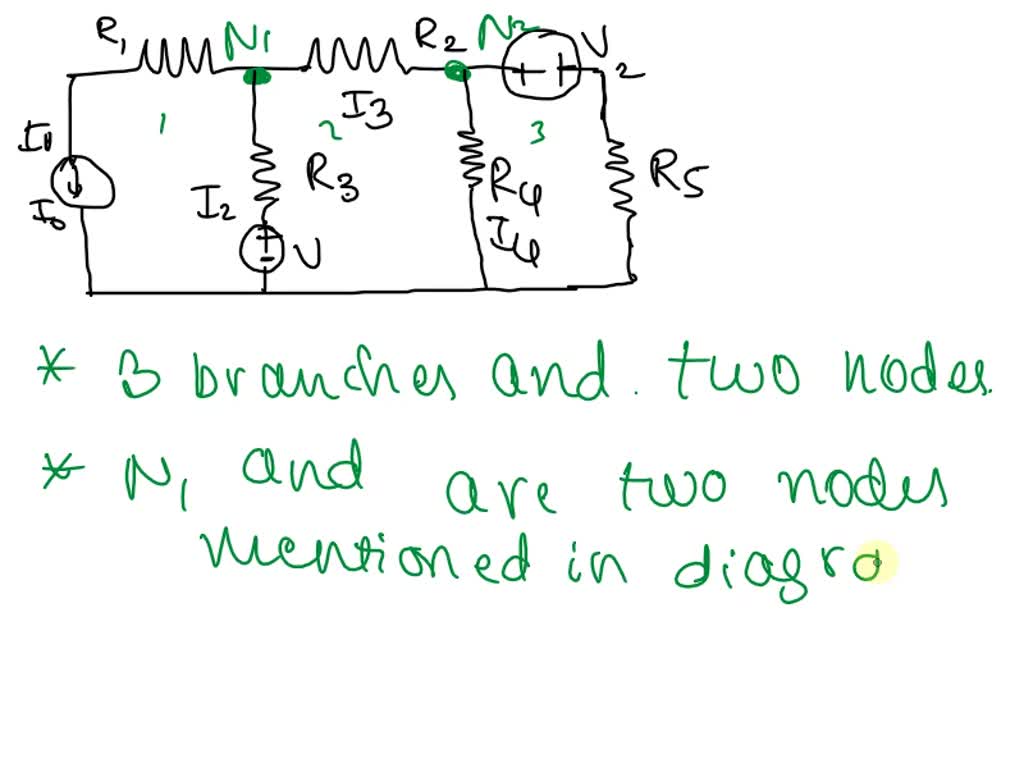 R1 N1 R2 N2 V2
I3
I1 1 2 3
I0 I2 R3 R4 R5
V I4
* 3 branches and. two nodes.
* N1 and are two nodes
mentioned in diagra